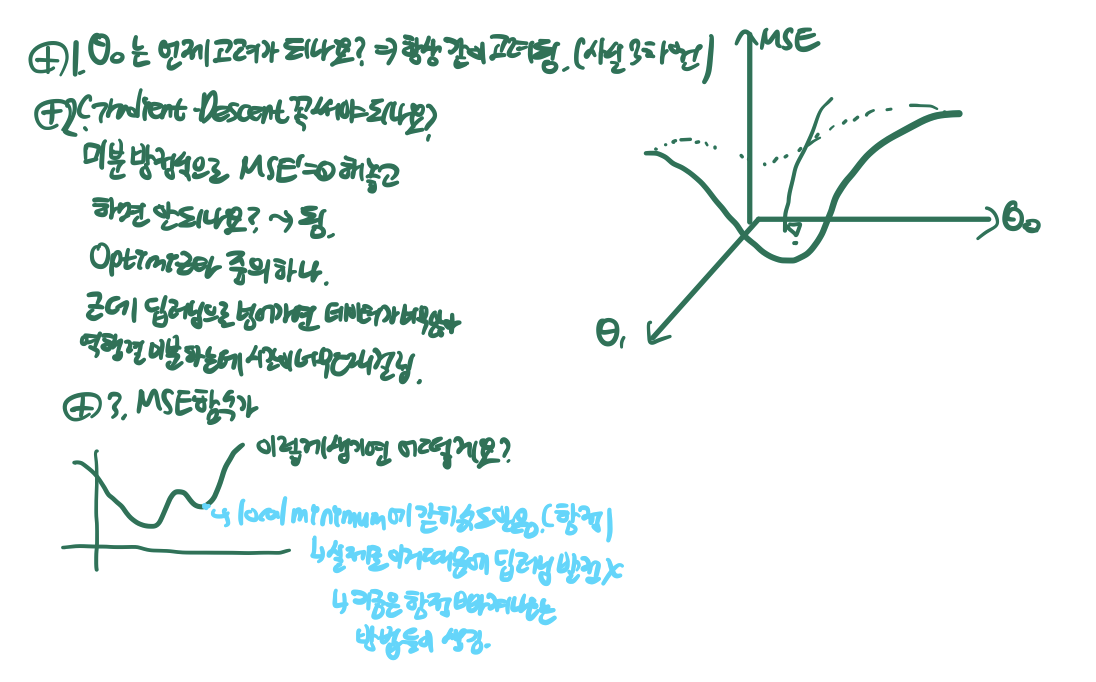 ⊕1. θ₀는 언제 고려가 되나요? ⇒ 항상 같이 고려됨. (사실 3차원)
MSE
⊕2. Gradient Descent 꼭 써야 되나요?
미분 방정식으로 MSE'=0 해놓고
하면 안되나요? ~> 됨.
θ₀
Optimizer 중의 하나.
근데 딥러닝으로 넘어가면 데이터가 너무 많아
θ₁
역행렬 미분하는데 시간이 너무 오래 걸림.
⊕3. MSE함수가
이렇게 생기면 어떻게요?
↳ local minimum에 갇힐 수도 있음. (함정)
↳ 실제로 이거 때문에 딥러닝 발전 x
↳ 지금은 함정 빠져나오는
방법들이 생김.